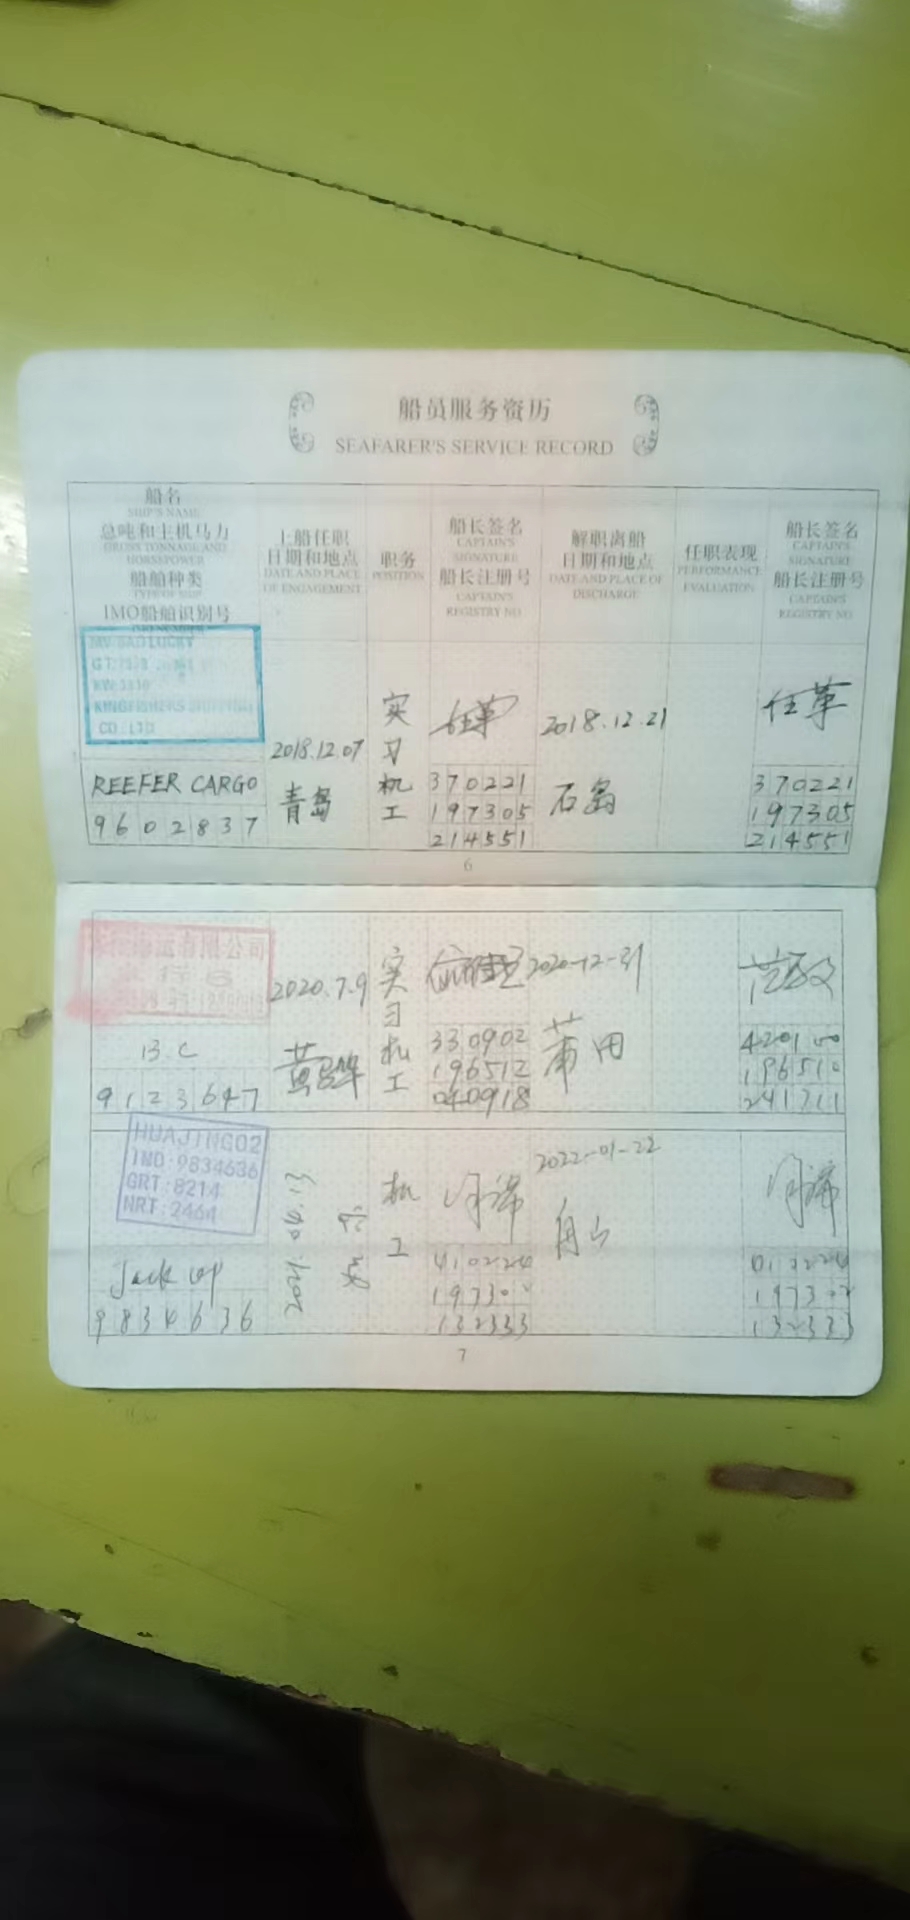 船员服务资历
SEAFARER'S SERVICE RECORD
船名
SHIP'S NAME
总吨和主机马力
GROSS TONNAGE AND
HORSEPOWER
船舶种类
TYPE OF SHIP
IMO船舶识别号
上船任职
日期和地点
DATE AND PLACE
OF ENGAGEMENT
职务
POSITION
船长签名
CAPTAIN'S
SIGNATURE
船长注册号
CAPTAIN'S
REGISTRY NO
解职离船
日期和地点
DATE AND PLACE OF
DISCHARGE
任职表现
PERFORMANCE
EVALUATION
船长签名
CAPTAIN'S
SIGNATURE
船长注册号
CAPTAIN'S
REGISTRY NO
LUCKY
CO. LTD
REEFER CARGO
9602837
2018.12.07
青岛
实习机工
任革
370221
197305
214551
2018.12.21
石岛
任革
370221
197305
214551
6
海运有限公司
B.C
9123647
2020.7.9
黄骅
实习机工
330902
196512
040918
2020-12-31
莆田
241711
HUAJING02
IMO:9834636
GRT:8214
NRT:2464
Jack up
9834636
机工
132333
2022-01-22
舟山
132333
7